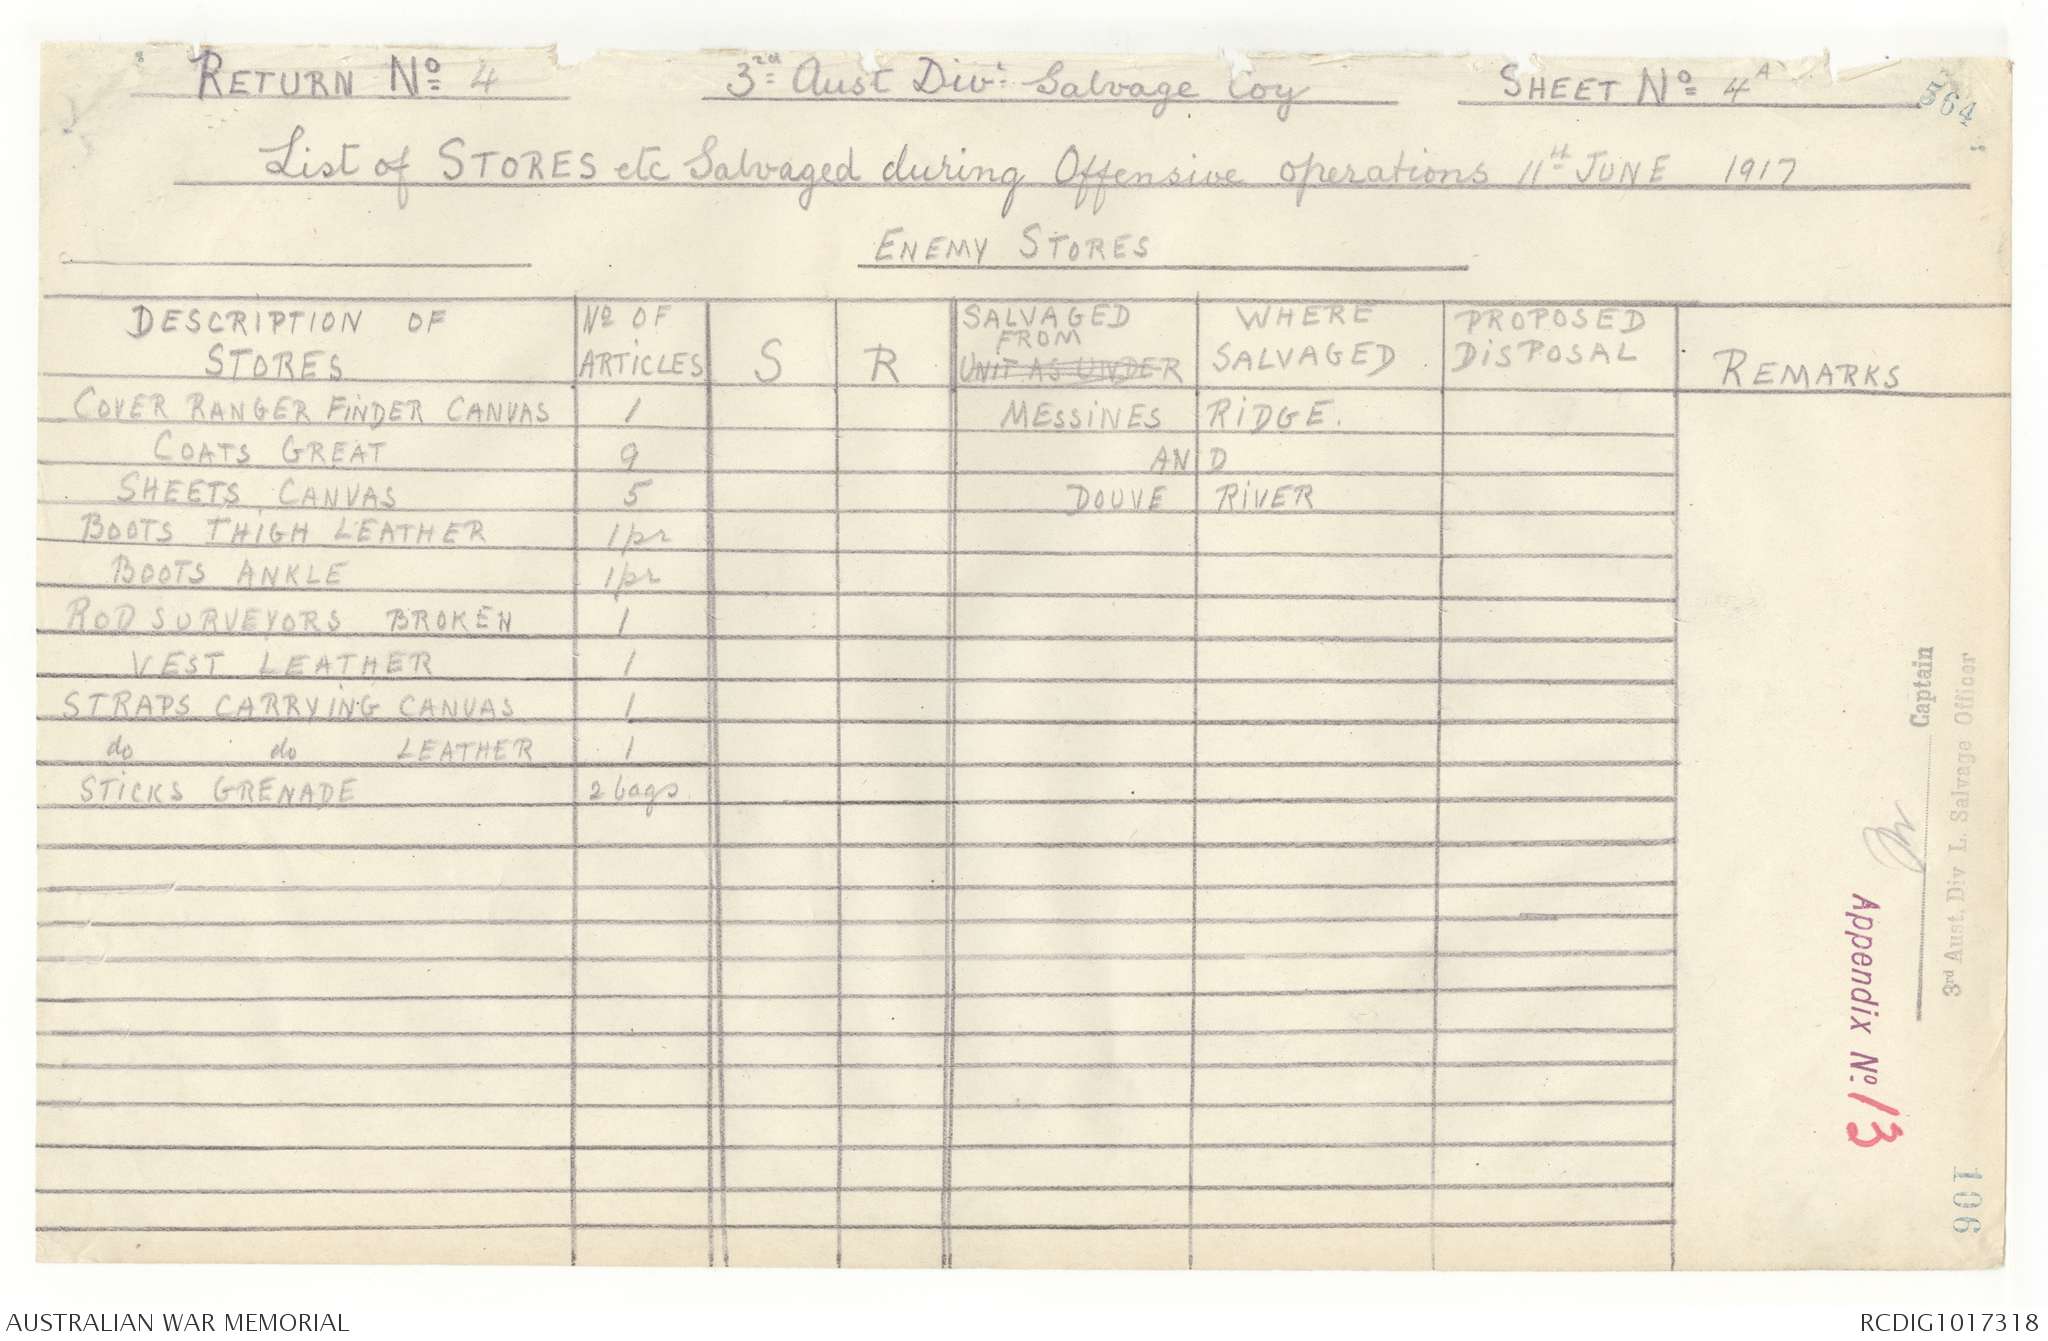 RETURN No 4 3rd Aust Div: Salvage Coy SHEET No 4A
564
List of STORES etc Salvaged during Offensive operations 11th JUNE 1917
ENEMY STORES
DESCRIPTION OF STORES No OF ARTICLES S R SALVAGED FROM UNIT AS UNDER WHERE SALVAGED PROPOSED DISPOSAL REMARKS
COVER RANGER FINDER CANVAS 1 MESSINES RIDGE.
COATS GREAT 9 AND
SHEETS CANVAS 5 DOUVE RIVER
BOOTS THIGH LEATHER 1 pr
BOOTS ANKLE 1 pr
ROD SURVEYORS BROKEN 1
VEST LEATHER 1
STRAPS CARRYING CANVAS 1
do do LEATHER 1
STICKS GRENADE 2 bags.
Captain
3rd Aust. Div L. Salvage Officer
Appendix No. 13
106
AUSTRALIAN WAR MEMORIAL RCDIG1017318